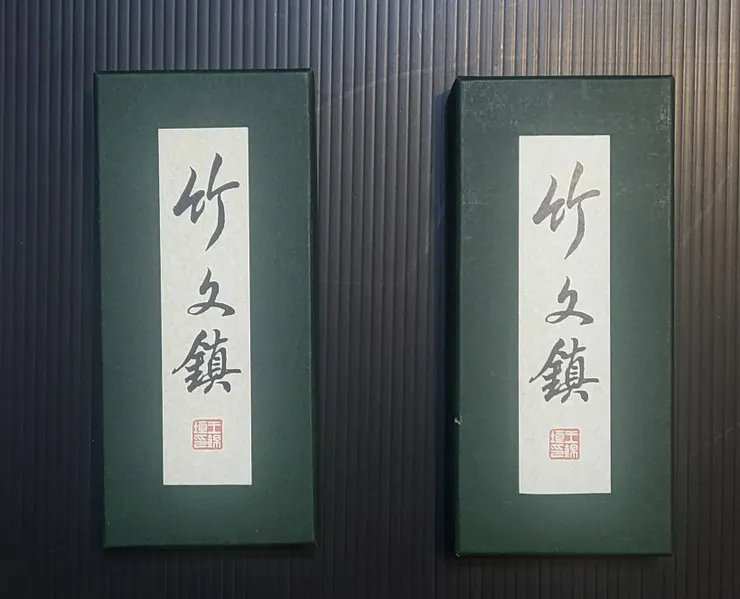 竹文鎮
竹文鎮